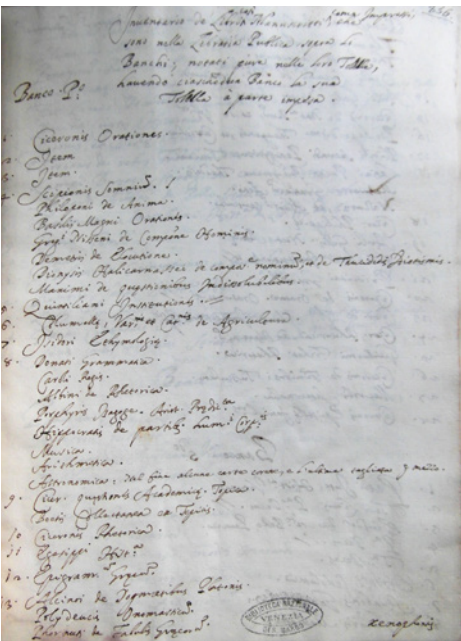 Inventario de Libri Manuscritti, che
sono nella Libraria Publica sopra li
Banchi; notati pure nelle loro Tolelle,
havendo ciaschedun Banco la sua
Tolella à parte impressa.
Banco Pº
1. Ciceronis Orationes.
2. Item
3. Item.
4. Scipionis Somniũ.
Philoponi de Anima.
Basilij Magni Orationes.
Greg. Nisseni de Hominis.
Demetrius de Elocutione.
Dionysij Halicarnassei de nominũ, et de Thucididis
de quaestionibus Indissolubilibus.
5. Quintiliani Institutiones.
6. Columella, Var. et Cat. de Agricultura
7. Isidori Ethymologiae
8. Donati Grammatica.
Carli Regis.
Albini de Rhetorica.
Porphyrij Isagoge. Arist. Predic.ta
Hippocratis de partib. hum. Corp.
Musica.
Arithmetica.
Astronomica, nel fine alcune carte e l'ultima tagliata p meza.
9. Cicer. quaestiones Academicae. Topica.
Boetij in Topica.
10 Ciceronis Rhetorica.
11 Egesippi Hist.
12. Epigramm. Graecor.
13. Alcinoi de Dogmatibus Platonis.
Polydeucis Onomasticũ.
Phornuti de Fabulis Graecor.
xenophontis
BIBLIOTECA NAZIONALE
VENEZIA